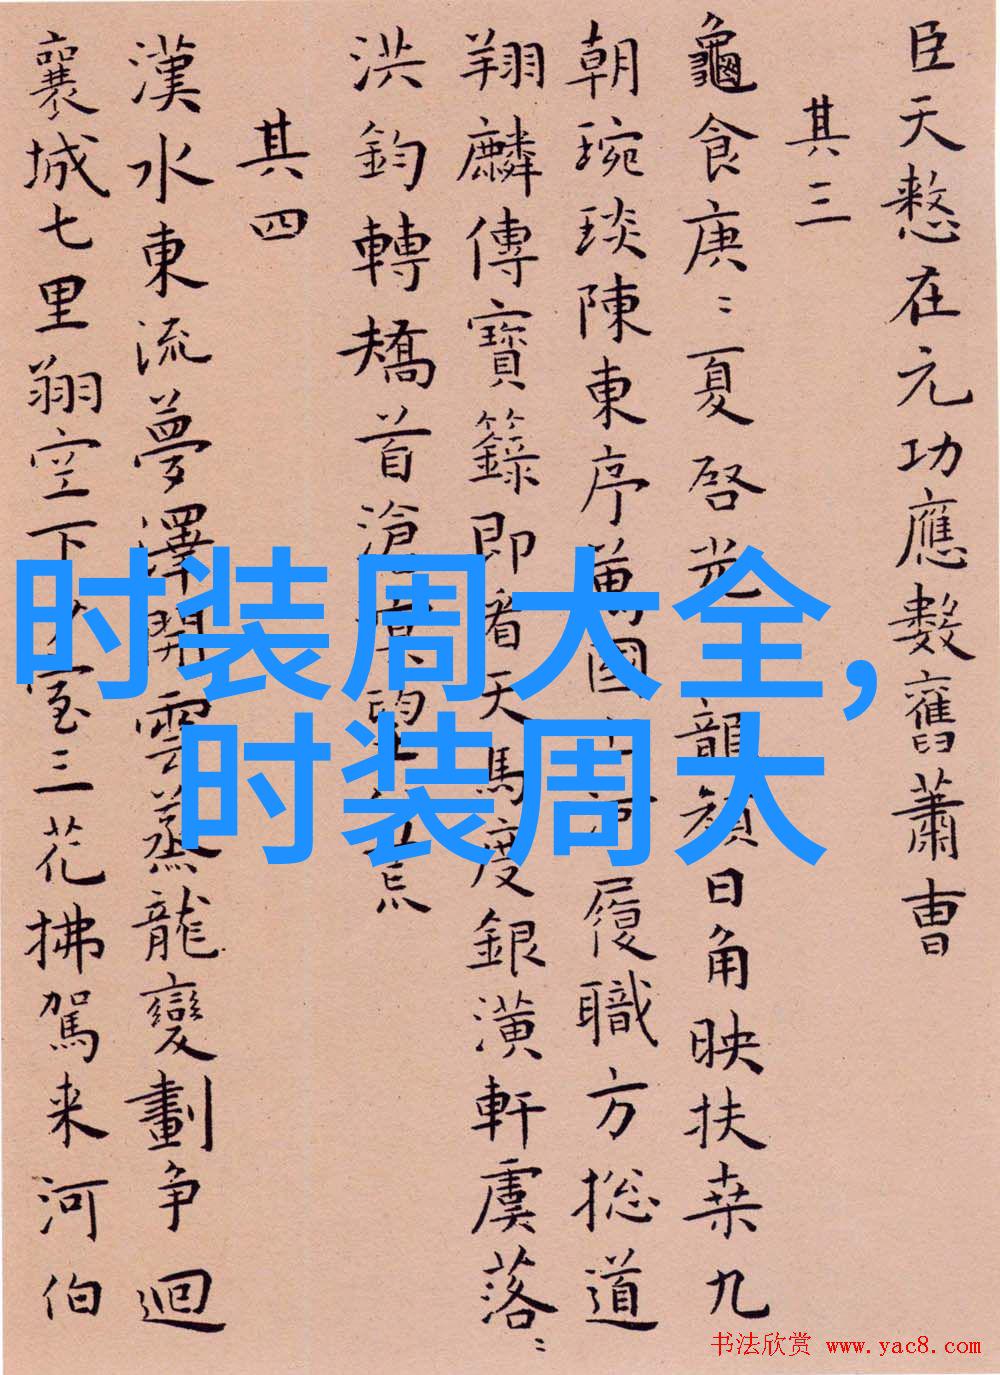 臣天憗在元功應數舊蕭曹
其三
龜食庚〻夏啓光龍顏日角映扶桒九
朝琬琰陳東序萬國山河履職方捴道
翔麟傳寶籙即看天馬度銀潢軒虞落〻
洪鈞轉矯首滄溟望荒
其四
漢水東流夢澤開雲蒸龍變劃争迴
襄城七里翔空下少室三花拂駕来河伯
时装周大全，
时装周大
书法欣赏 www.yac8.com